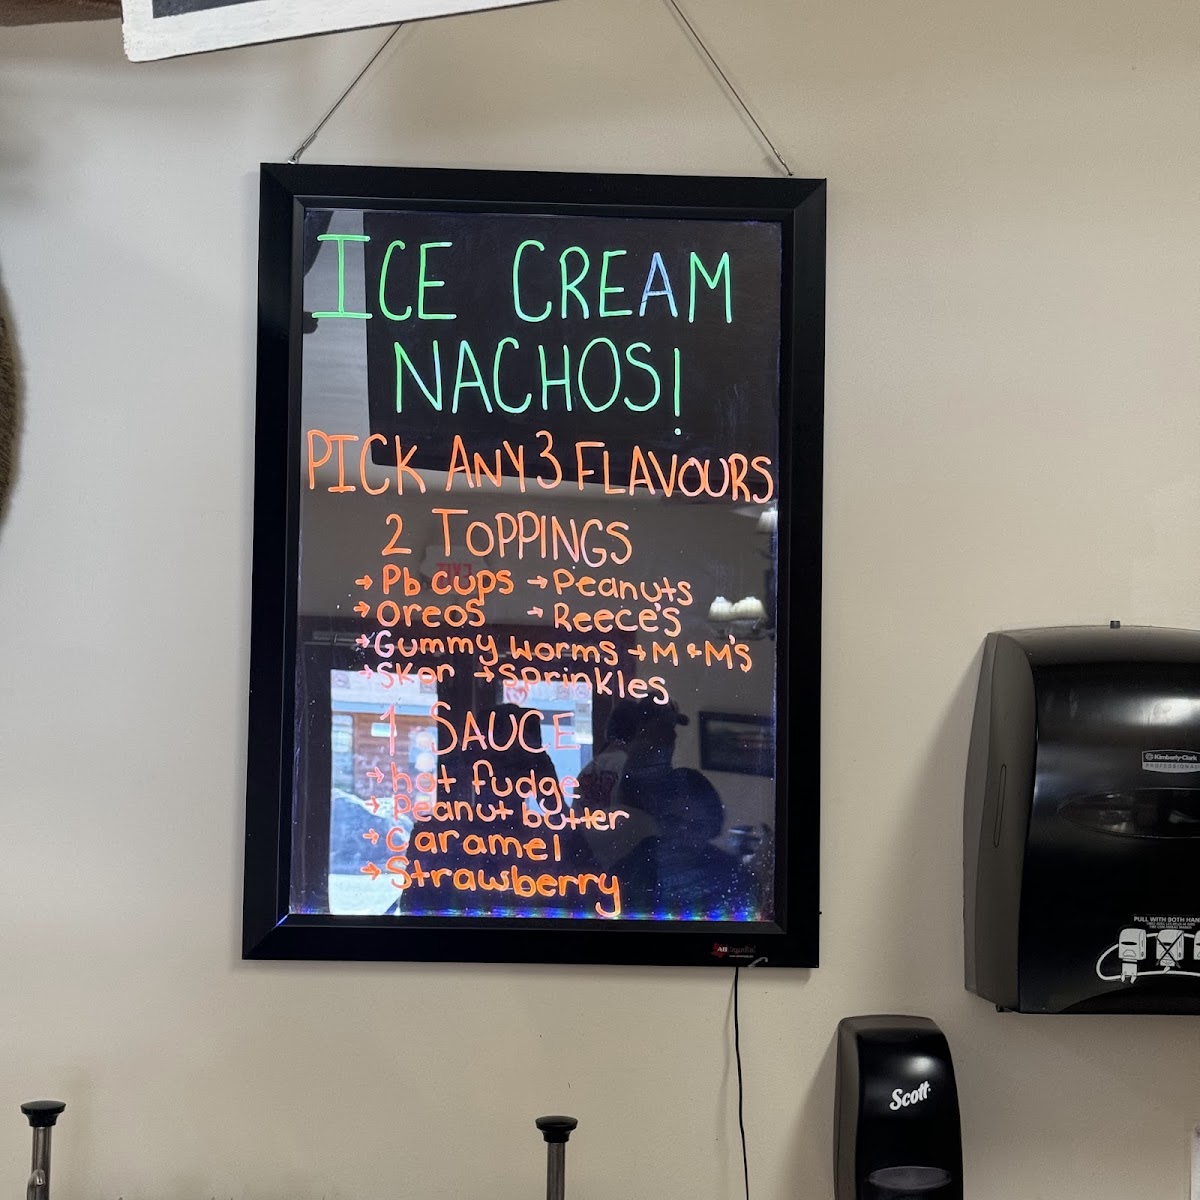 ICE CREAM
NACHOS!
PICK ANY 3 FLAVOURS
2 TOPPINGS
→ Pb cups → Peanuts
→ Oreos → Reece's
→ Gummy Worms → M & M's
→ Skor → Sprinkles
1 SAUCE
→ hot fudge
→ Peanut butter
→ Caramel
→ Strawberry
Kimberly-Clark
PROFESSIONAL
PULL WITH BOTH HAN
Scott